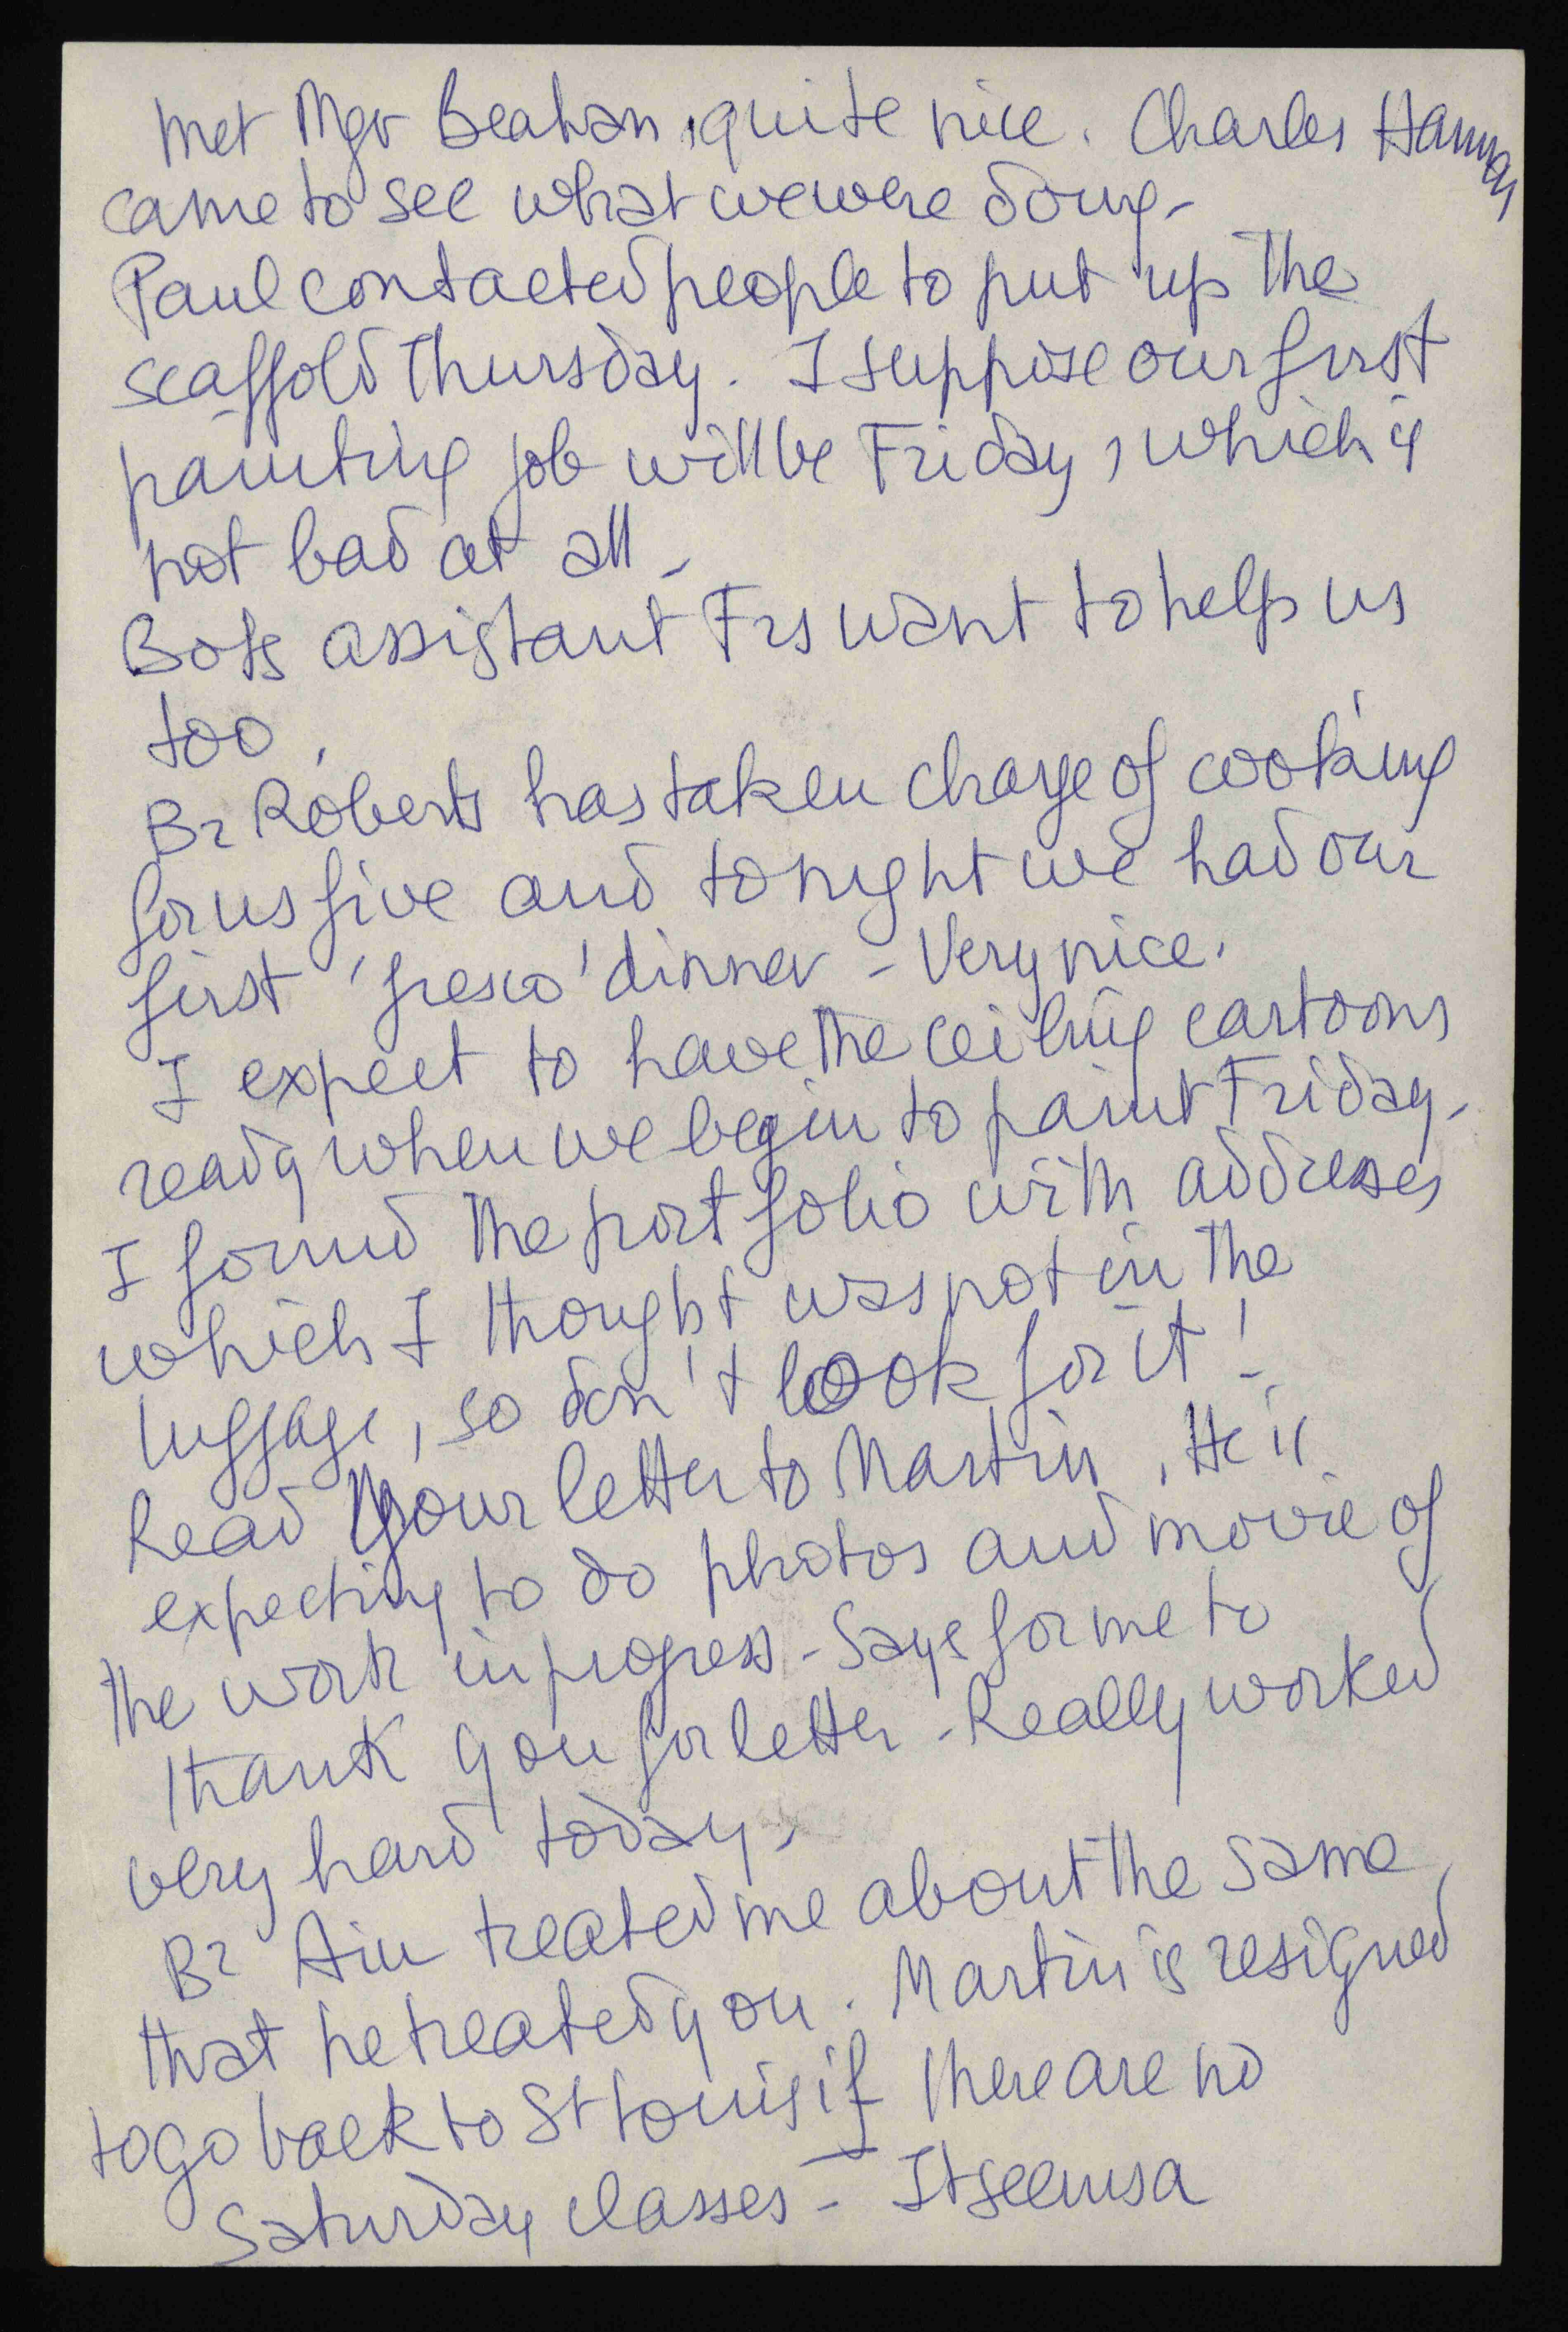 met Mgr Beahan, quite nice. Charles Hannan
came to see what we were doing-
Paul contacted people to put up the
scaffold Thursday. I suppose our first
painting job will be Friday, which is
not bad at all-
Both assistant Frs want to help us
too.
Br Roberts has taken charge of cooking
for us five and tonight we had our
first 'fresco' dinner - Very nice.
I expect to have the ceiling cartoons
ready when we begin to paint Friday.
I found the portfolio with addresses
which I thought was not in the
luggage, so don't look for it!
Read your letter to Martin. He is
expecting to do photos and movie of
the work in progress - Says for me to
thank you for letter - Really worked
very hard today.
Br Aiu treated me about the same
that he treated you. Martin is resigned
to go back to St Louis if there are no
Saturday classes - It seems a